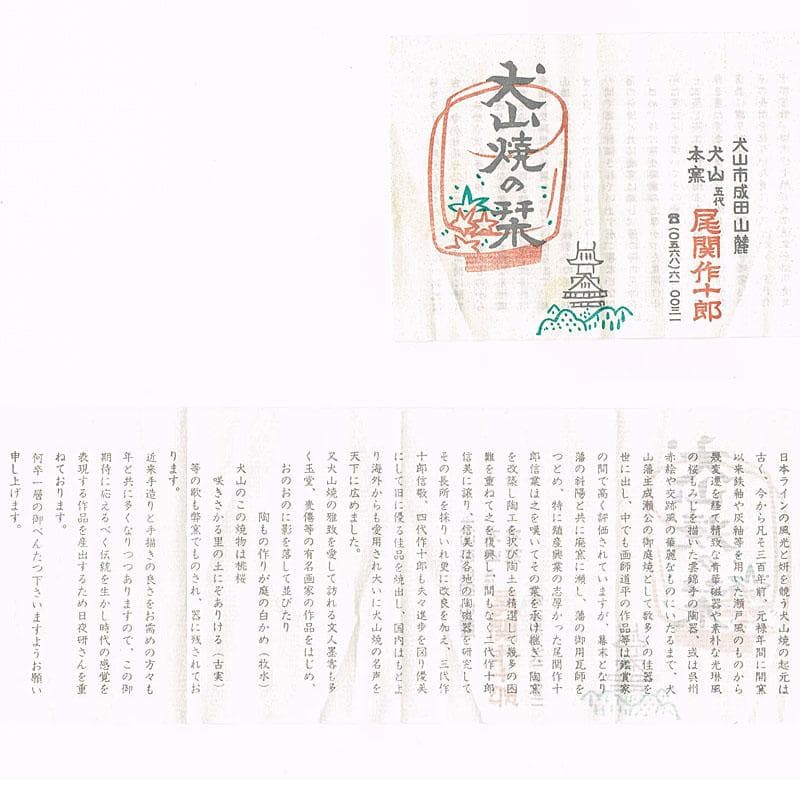 犬山焼の栞
犬山市成田山麓
犬山
五代
本窯
尾関作十郎
☎(〇五六八)六一 〇〇三一
日本ラインの風光と妍を競う犬山焼の起元は
古く、今から凡そ三百年前、元禄年間に開窯
以来鉄釉や灰釉等を用いた瀬戸風のものから
幾変遷を経て精致な青華磁器や素朴な光琳風
の桜もみじを描いた雲錦手の陶器、或は呉州
赤絵や交跡風の華麗なものにいたるまで、犬
山藩主成瀬公の御庭焼として数多くの佳器を
世に出し、中でも画師道平の作品等は鑑賞家
の間で高く評価されていますが、幕末となり
藩の斜陽と共に廃窯に瀕し、藩の御用瓦師を
つとめ、特に殖産興業の志厚かった尾関作十
郎信業は之を嘆いてその業を承け継ぎ、陶窯
を改築し陶工を択び陶土を精選して幾多の困
難を重ねて之を復興し、間もなく二代作十郎
信美に譲り、信美は各地の陶磁器を研究して
その長所を採りいれ更に改良を加え、三代作
十郎信敬、四代作十郎も夫々進歩を図り優美
にして旧に優る佳品を焼出し、国内はもと上
り海外からも愛用され大いに犬山焼の名声を
天下に広めました。
又犬山焼の雅致を愛して訪れる文人墨客も多
く玉堂、麦僊等の有名画家の作品をはじめ、
おのおのに影を落して並びたり
陶もの作りが庭の白かめ(牧水)
犬山のこの焼物は桃桜
咲きさかる里の土にぞありける(古実)
等の歌も弊窯でものされ、器に残されてお
ります。
近来手造りと手描きの良さをお需めの方々も
年と共に多くなりつつありますので、この御
期待に応えるべく伝統を生かし時代の感覚を
表現する作品を産出するため日夜研さんを重
ねております。
何卒一層の御べんたつ下さいますようお願い
申し上げます。